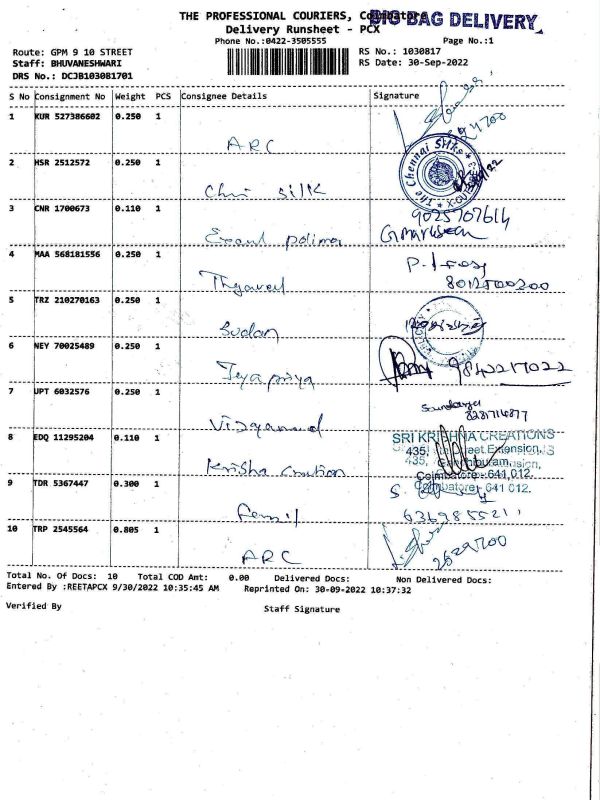 THE PROFESSIONAL COURIERS, Coimbatore
BIG BAG DELIVERY
Delivery Runsheet - PCX
Phone No.:0422-3505555
Page No.:1
Route: GPM 9 10 STREET
RS No.: 1030817
Staff: BHUVANESHWARI
RS Date: 30-Sep-2022
DRS No.: DCJB103081701
S No Consignment No Weight PCS Consignee Details Signature
1 KUR 527386602 0.250 1
ARC
2 HSR 2512572 0.250 1
The Chennai Silks
silk
3 CNR 1700673 0.110 1
9025707614
4 MAA 568181556 0.250 1
8012500200
5 TRZ 210270163 0.250 1
Sudan
6 NEY 70025489 0.250 1
9842217022
Jeyapriya
7 UPT 6032576 0.250 1
8 EDQ 11295204 0.110 1
SRI KRISHNA CREATIONS
435, Street Extension,
Coimbatore - 641 012.
Krisha
9 TDR 5367447 0.300 1
10 TRP 2545564 0.805 1
ARC
Total No. Of Docs: 10 Total COD Amt: 0.00 Delivered Docs: Non Delivered Docs:
Entered By :REETAPCX 9/30/2022 10:35:45 AM Reprinted On: 30-09-2022 10:37:32
Verified By
Staff Signature